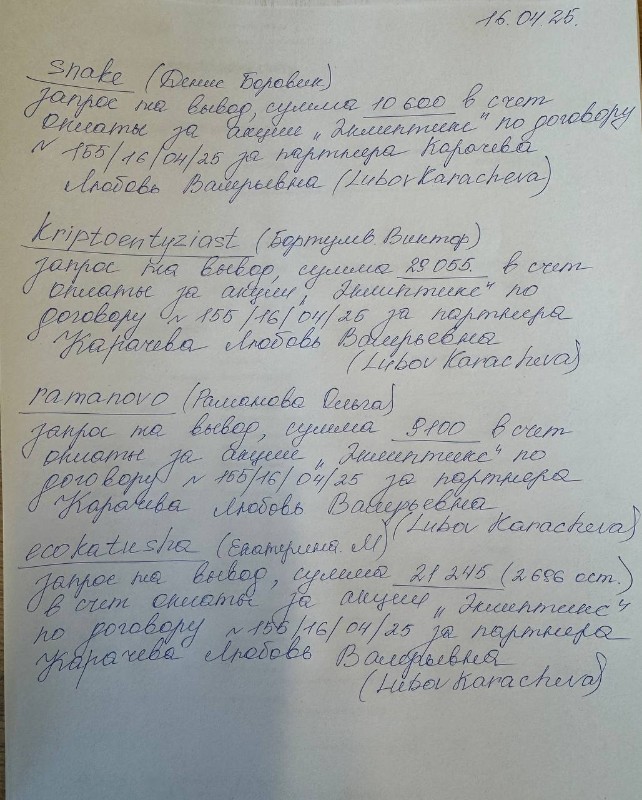 16.04 25.
snake (Денис Боровик)
запрос на вывод, сумма 10 600 в счет
оплаты за акции „Эклиптикс" по договору
N 155/16/04/25 за партнера Карачева
Любовь Валерьевна (Lubov Karacheva)
kriptoentyziast (Виктор)
запрос на вывод, сумма 29 055. в счет
оплаты за акции „Эклиптикс" по
договору N 155/16/04/25 за партнера
Карачева Любовь Валерьевна
(Lubov Karacheva)
ramanovo (Раманова Ольга)
запрос на вывод, сумма 9100 в счет
оплаты за акции „Эклиптикс" по
договору N 155/16/04/25 за партнера
Карачева Любовь Валерьевна
(Lubov Karacheva)
ecokatusha (Екатерина. М)
запрос на вывод, сумма 21 245 (2 696 ост.)
в счет оплаты за акции „Эклиптикс"
по договору N 155/16/04/25 за партнера
Карачева Любовь Валерьевна
(Lubov Karacheva)